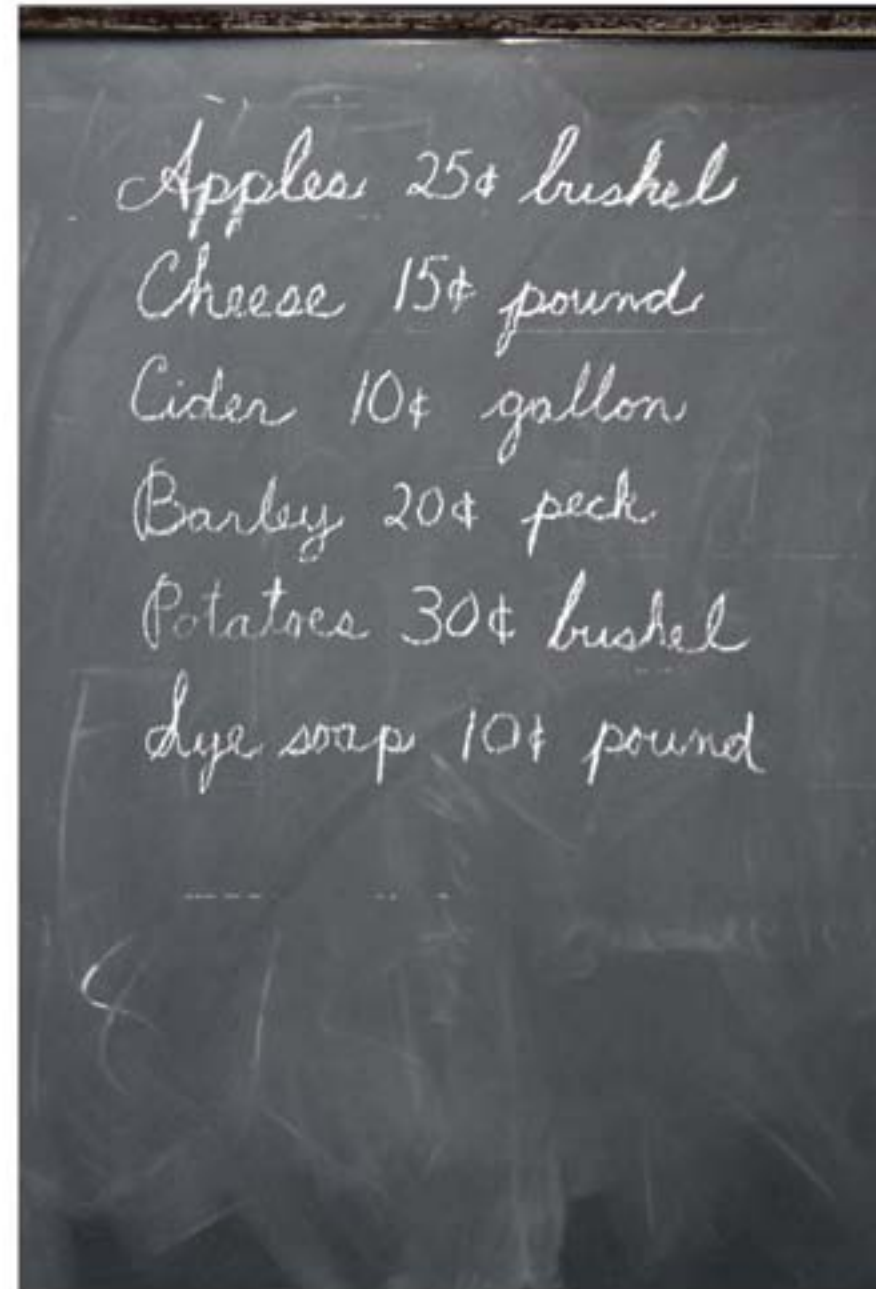 Apples 25¢ bushel
Cheese 15¢ pound
Cider 10¢ gallon
Barley 20¢ peck
Potatoes 30¢ bushel
Lye soap 10¢ pound